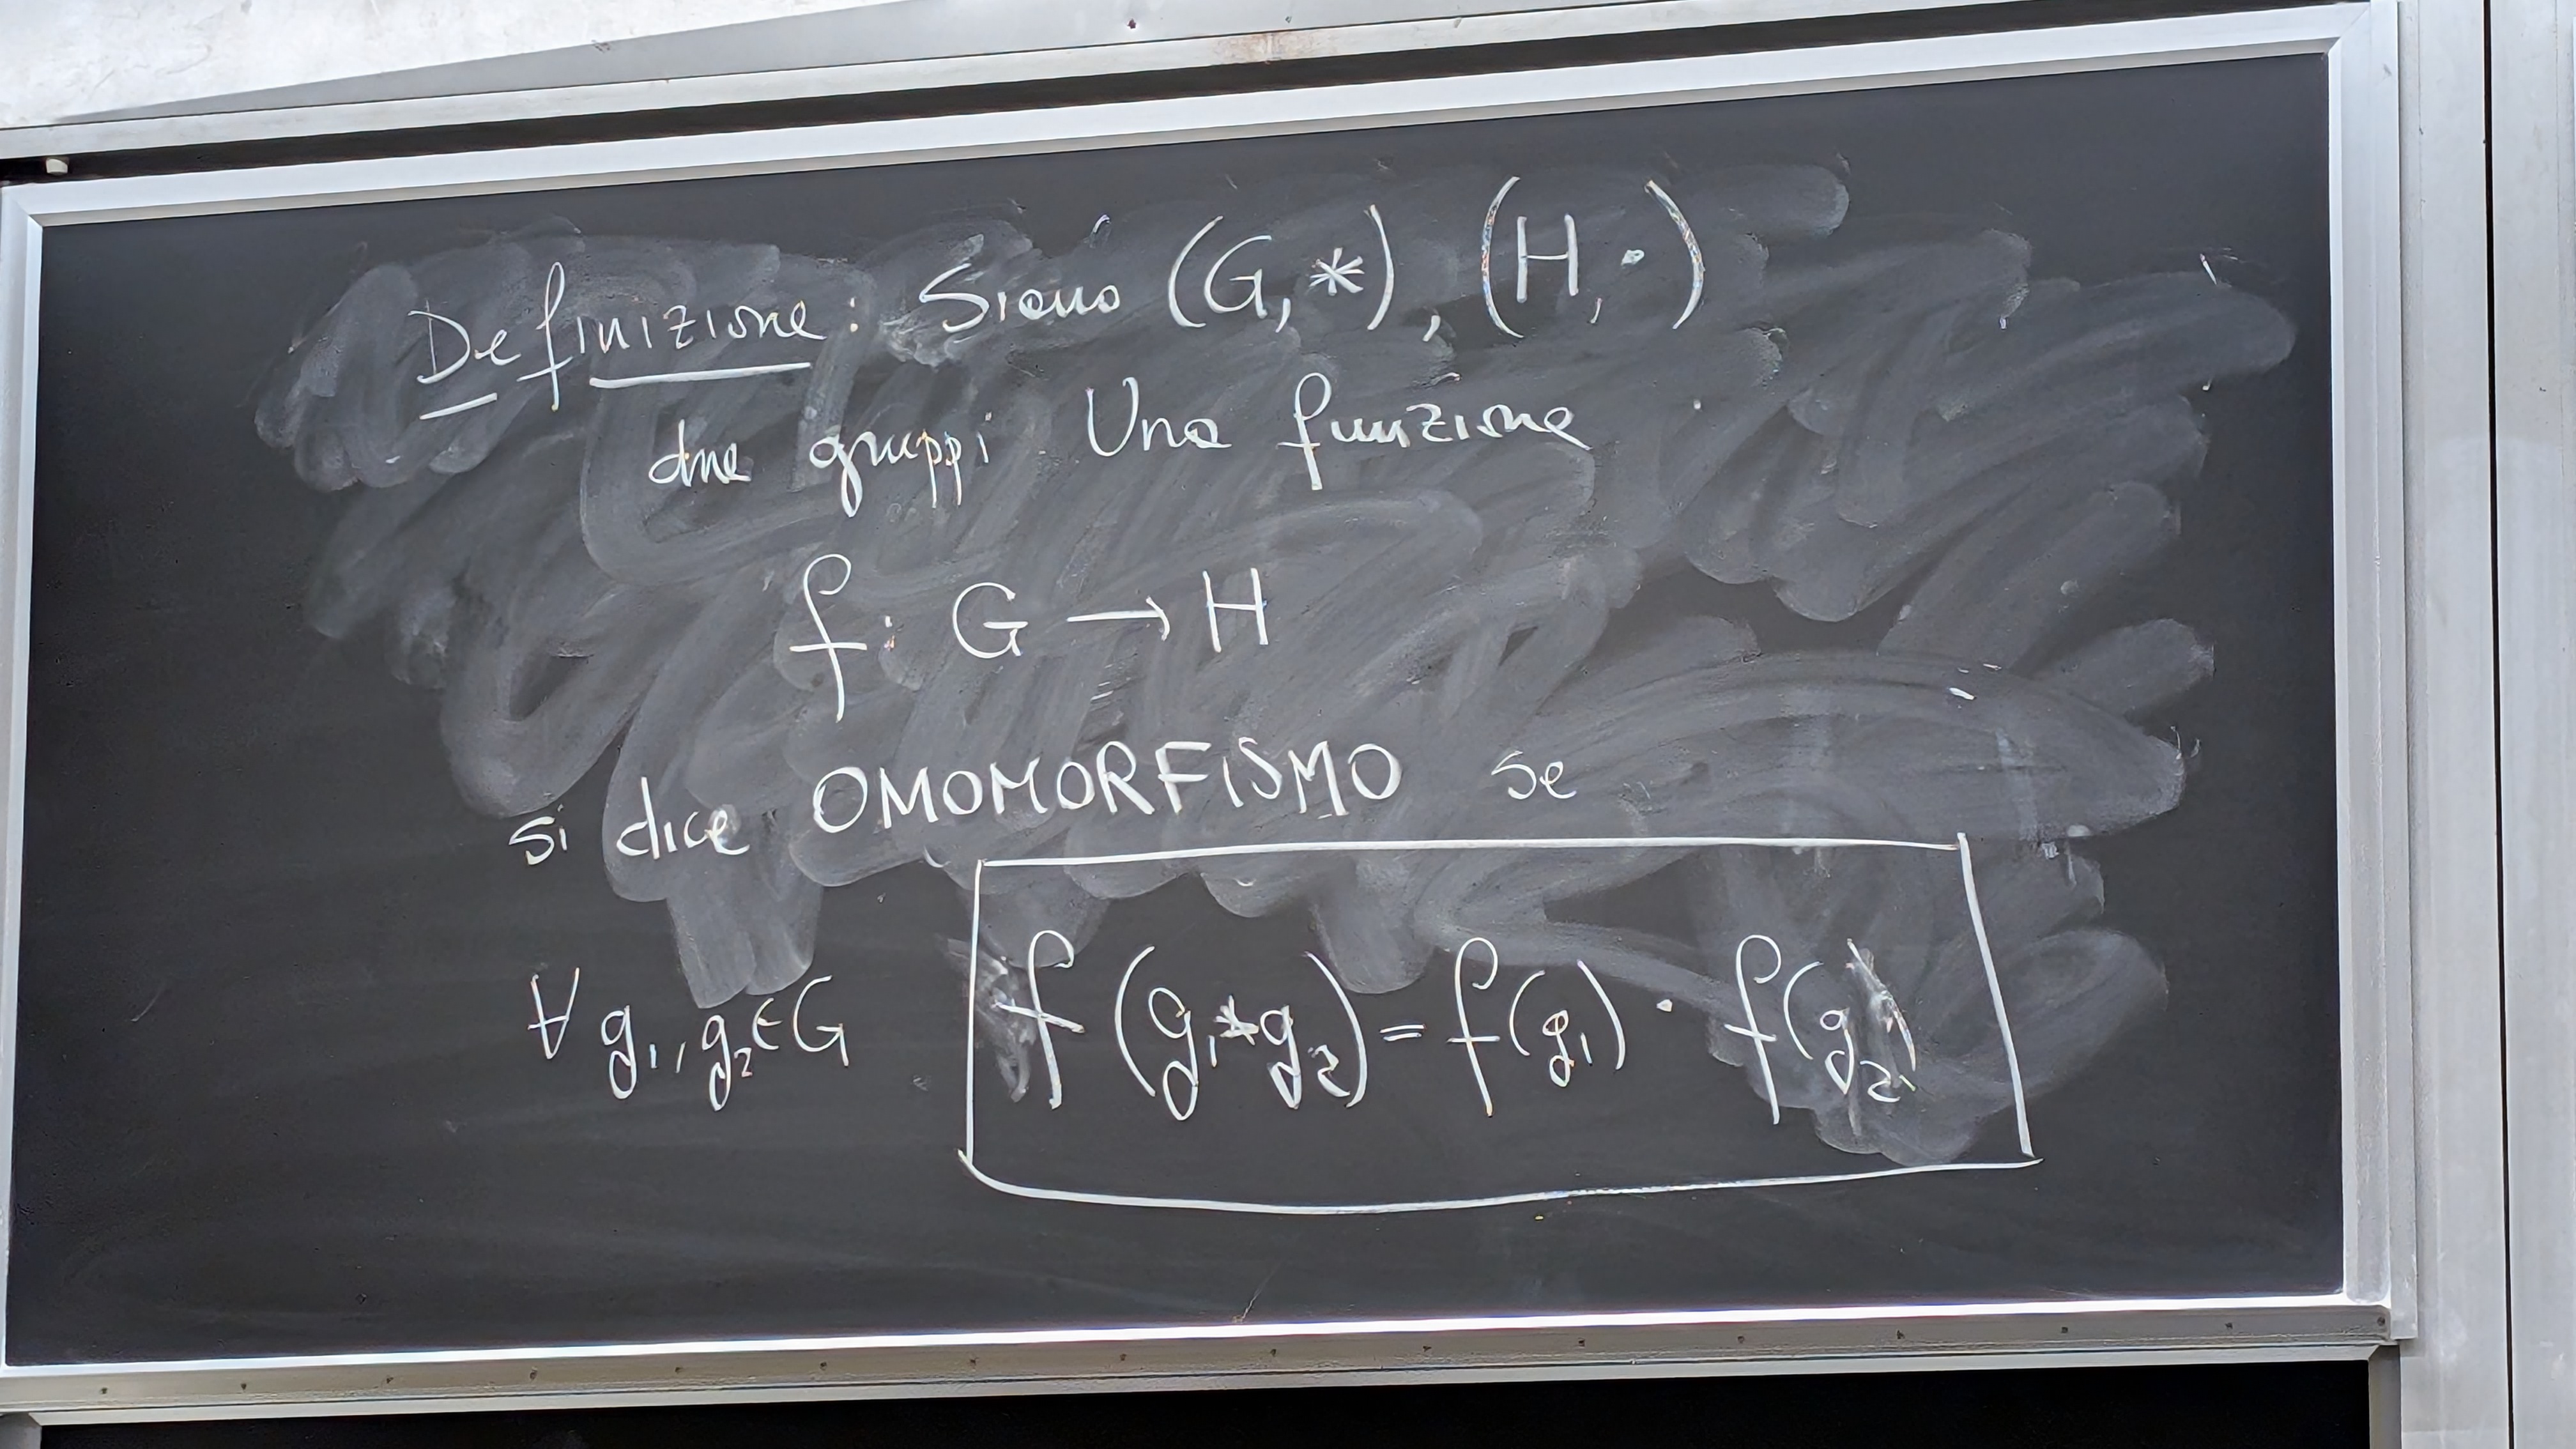 Definizione: Siano (G, *), (H, ·)
due gruppi Una funzione
f: G → H
si dice OMOMORFISMO se
∀ g₁, g₂ ∈ G f(g₁ * g₂) = f(g₁) · f(g₂)